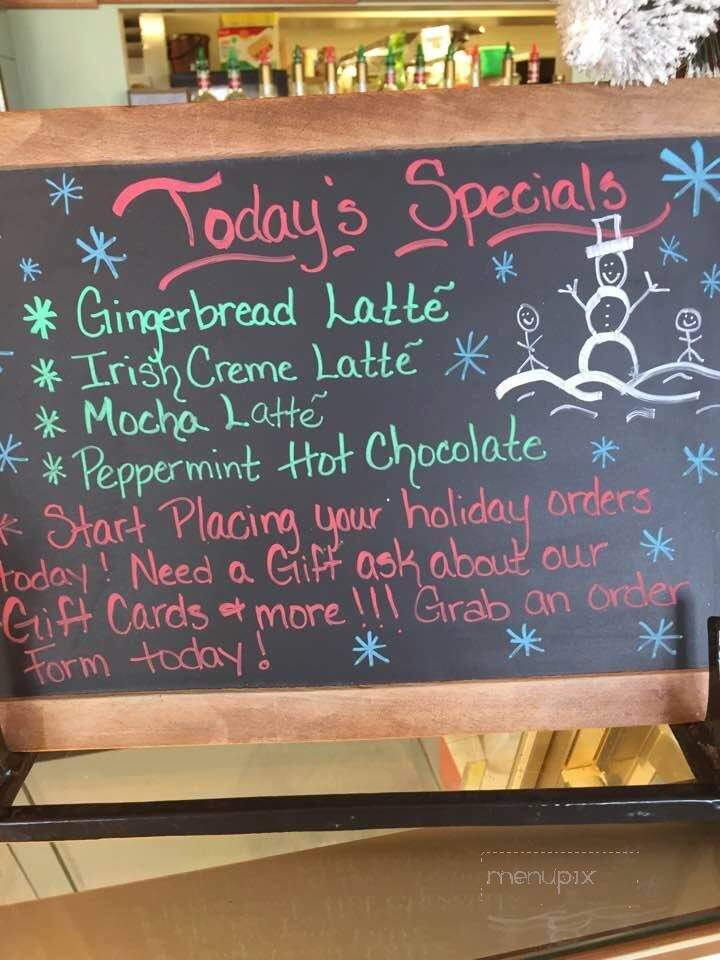 Today's Specials
* Gingerbread Latte
* Irish Creme Latte
* Mocha Latte
* Peppermint Hot Chocolate
* Start Placing your holiday orders
today! Need a Gift ask about our
Gift Cards & more!!! Grab an order
Form today!
menupix